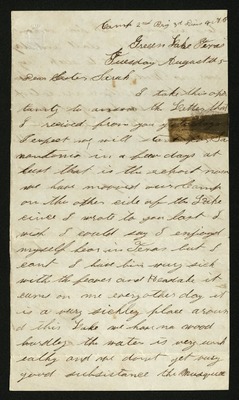 Camp 2nd Brig 3d Div 4th
Green Lake Texas
Tuesday August
Dear Sister Sarah
I take this opor
tunity to answer the Letter that
I recived from you
I expect we will
in a few days at
least that is the report now
we have moved our Camp
on the other side of the Lake
cince I wrote to you last I
wish I could say I enjoyed
myself hear in Texas but I
cant I have bin very sick
with the feaver and Headake it
cums on me evry other day it
is a very sickley place arown
d this Lake we have no wood
hardley the water is very unh
ealthy and we dont get very
good subsistance the Musquit